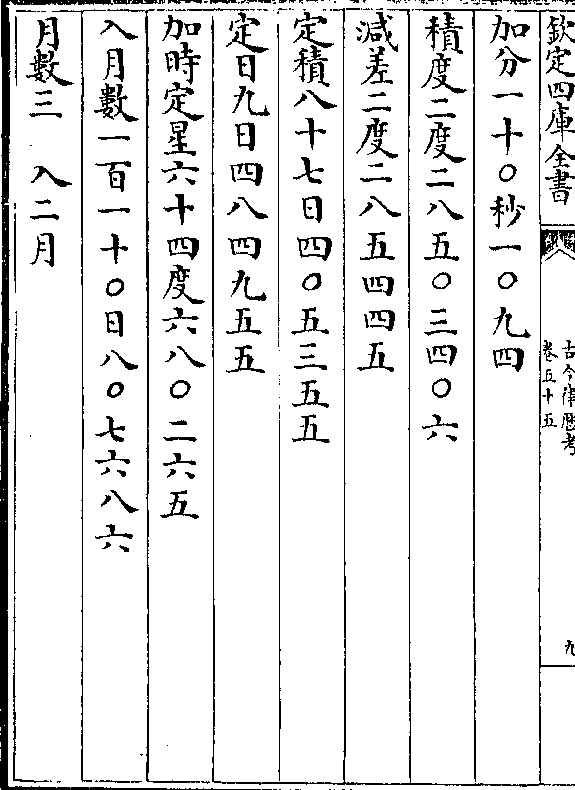 欽定四庫全書
古今律厯考
卷五十五
九
加分一十○秒一○九四
積度二度二八五○三四○六
減差二度二八五四四五
定積八十七日四○五三五五
定日九日四八四九五五
加時定星六十四度六八○二六五
入月數一百一十○日八○七六八六
月數三 入二月